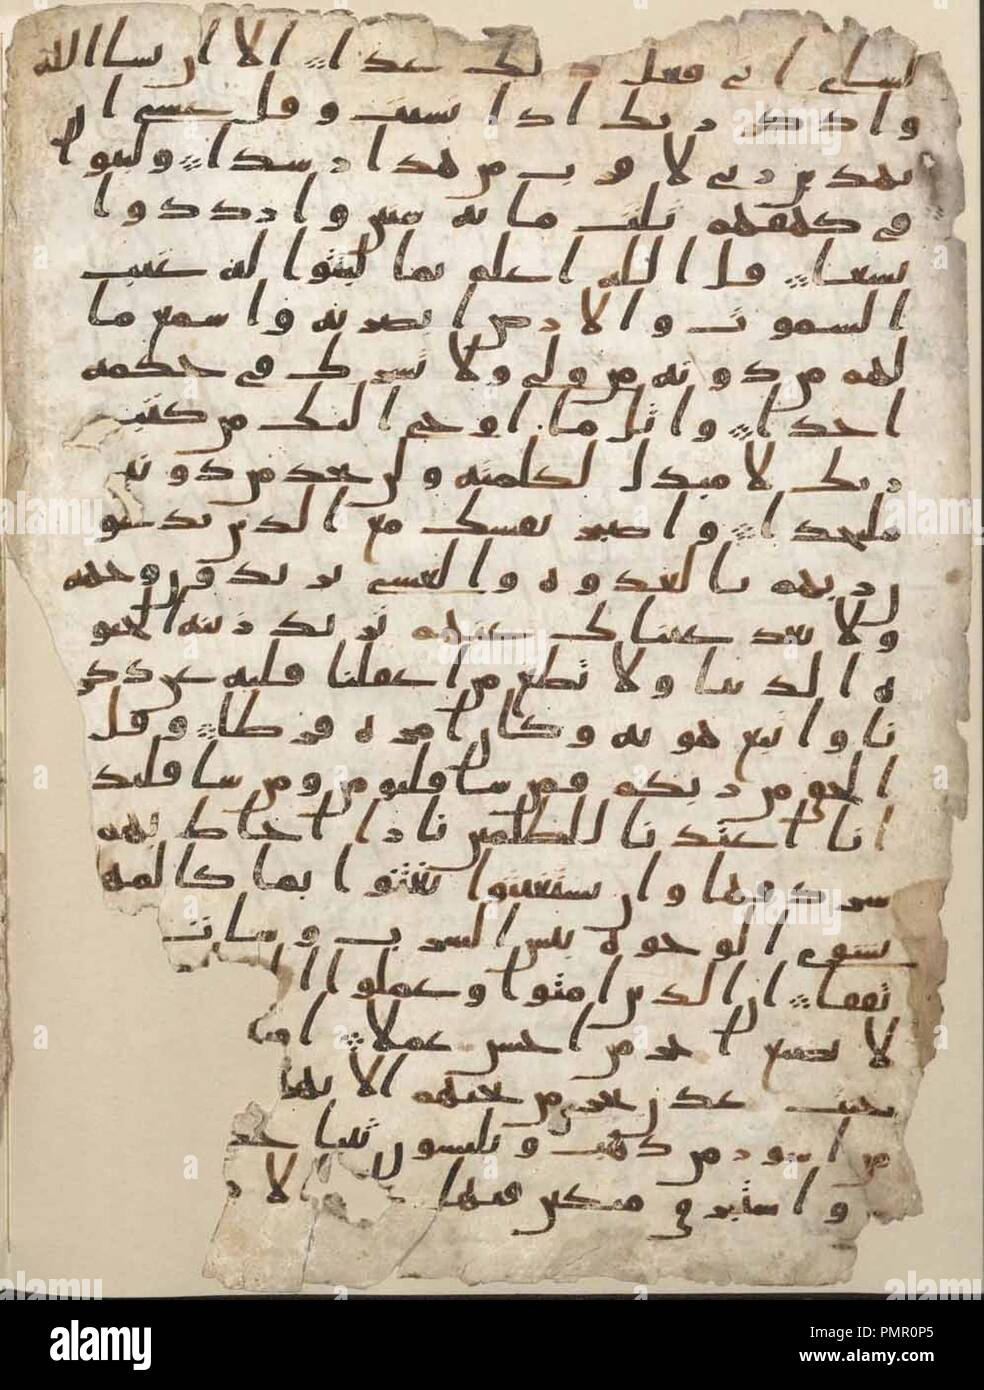 لشاى انى فعل ذلك غدا الا ان يشا الله
واذكر ربك اذا نسيت وقل عسى ان
يهدين ربى لاقرب من هذا رشدا ولبثوا
فى كهفهم ثلث مايه سنين وازددوا
تسعا قل الله اعلم بما لبثوا له غيب
السموت والارض ابصر به واسمع ما
لهم من دونه من ولى ولا يشرك فى حكمه
احدا واتل ما اوحى اليك من كتب
ربك لا مبدل لكلمته ولن تجد من دونه
ملتحدا واصبر نفسك مع الذين يدعو
ن ربهم بالغدوه والعشى يريدون وجهه
ولا تعد عيناك عنهم تريد زينه الحيو
ه الدنيا ولا تطع من اغفلنا قلبه عن ذكر
نا واتبع هويه وكان امره فرطا وقل
الحق من ربكم فمن شا فليومن ومن شا فليك
انا اعتدنا للظلمين نارا احاط بهم
سردقها وان يستغيثوا يغثوا بما كالمه
يشوى الوجوه بيس الشرب وسات
تفقا ان الذين امنوا وعملوا ا
لا نضيع اجر من احسن عملا او
جنت عدن تجرى من تحتهم الانها
من اسور من ذهب ويلبسون ثيابا
واستبرق متكين فيها الار
alamy
PMR0P5
www.alamy.com